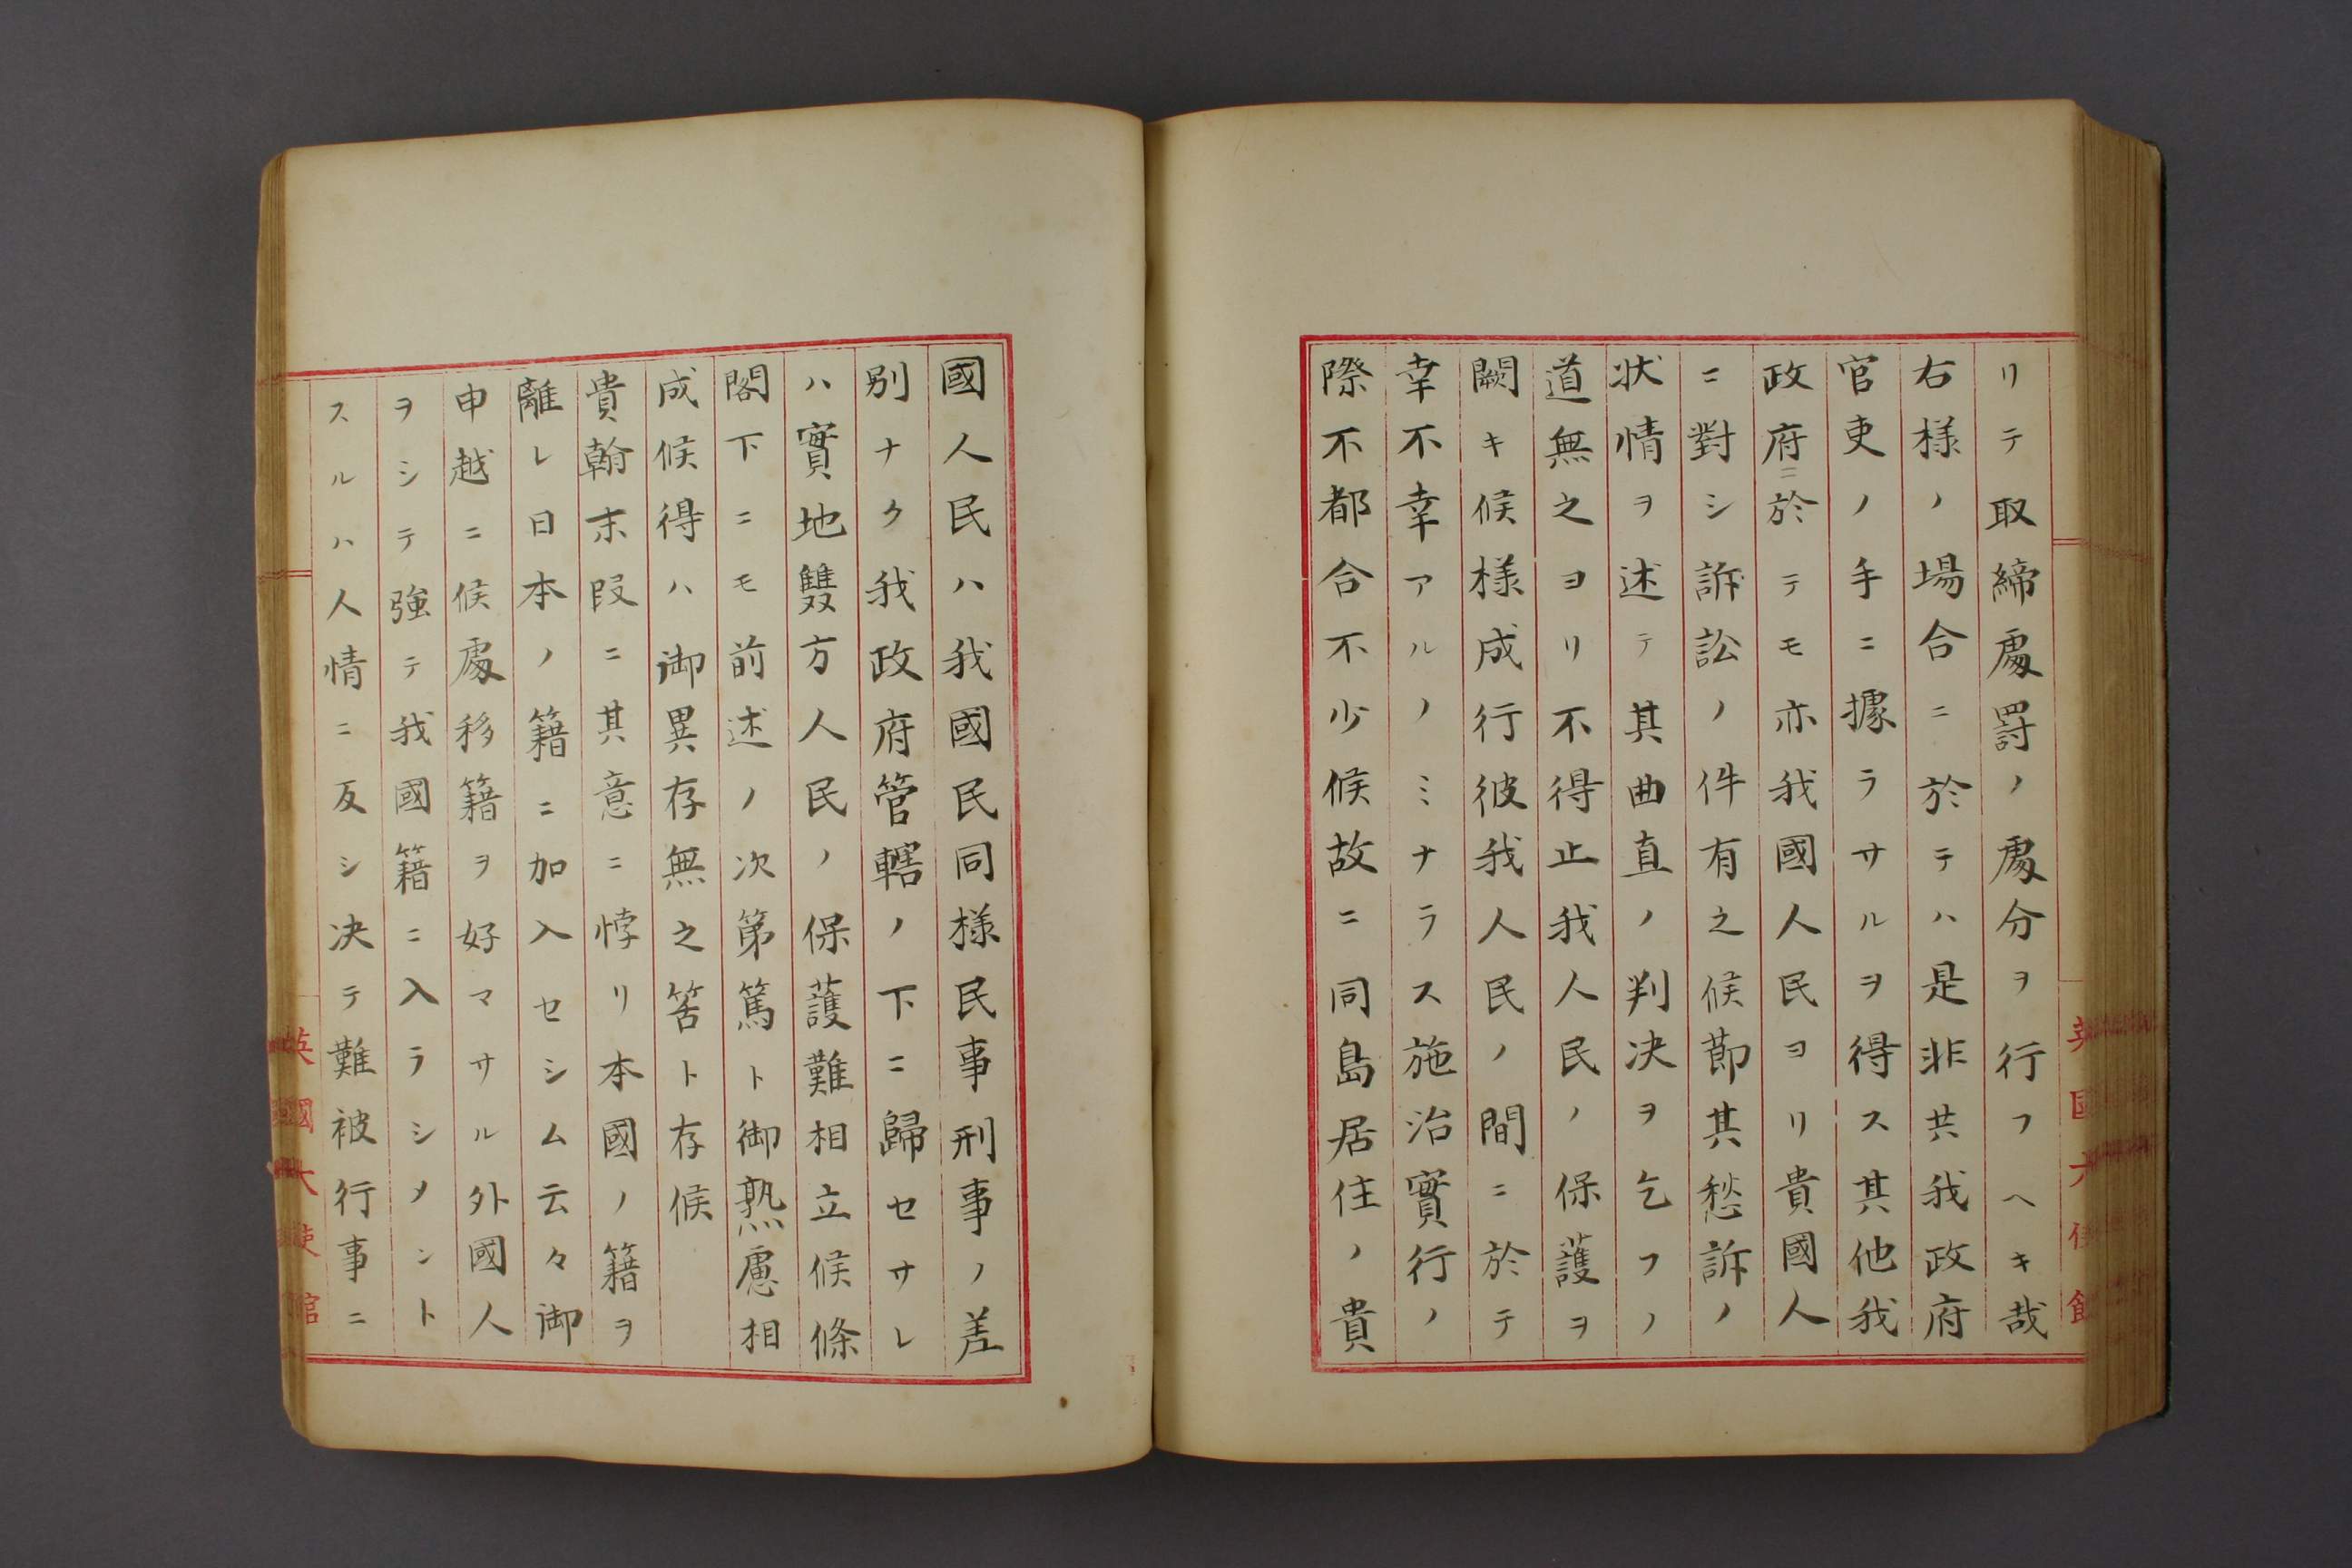 リテ取締處罸ノ處分ヲ行フヘキ哉
右様ノ場合ニ於テハ是非共我政府
官吏ノ手ニ據ラサルヲ得ス其他我
政府ニ於テモ亦我國人民ヨリ貴國人
ニ對シ訴訟ノ件有之候節其愁訴ノ
状情ヲ述テ其曲直ノ判决ヲ乞フノ
道無之ヨリ不得止我人民ノ保護ヲ
闕キ候様成行彼我人民ノ間ニ於テ
幸不幸アルノミナラス施治實行ノ
際不都合不少候故ニ同島居住ノ貴
英國大使館
國人民ハ我國民同様民事刑事ノ差
別ナク我政府管轄ノ下ニ歸セサレ
ハ實地雙方人民ノ保護難相立候條
閣下ニモ前述ノ次第篤ト御熟慮相
成候得ハ御異存無之筈ト存候
貴翰末段ニ其意ニ悖リ本國ノ籍ヲ
離レ日本ノ籍ニ加入セシム云々御
申越ニ候處移籍ヲ好マサル外國人
ヲシテ強テ我國籍ニ入ラシメント
スルハ人情ニ反シ决テ難被行事ニ
英國大使館